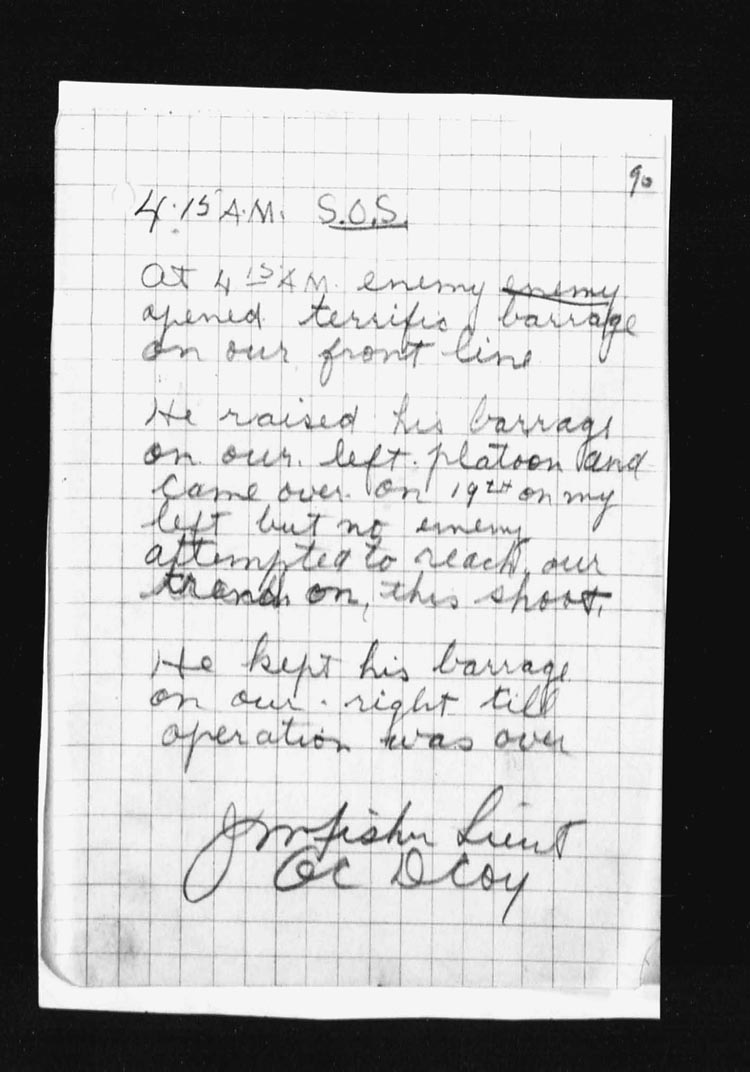 90
4.15 A.M. S.O.S.
At 4 15 A.M. enemy enemy
opened terrific barrage
on our front line
He raised his barrage
on our left platoon and
came over on 19th on my
left but no enemy
attempted to reach our
trench on this shoot.
He kept his barrage
on our right till
operation was over
Fisher Lieut
OC D Coy